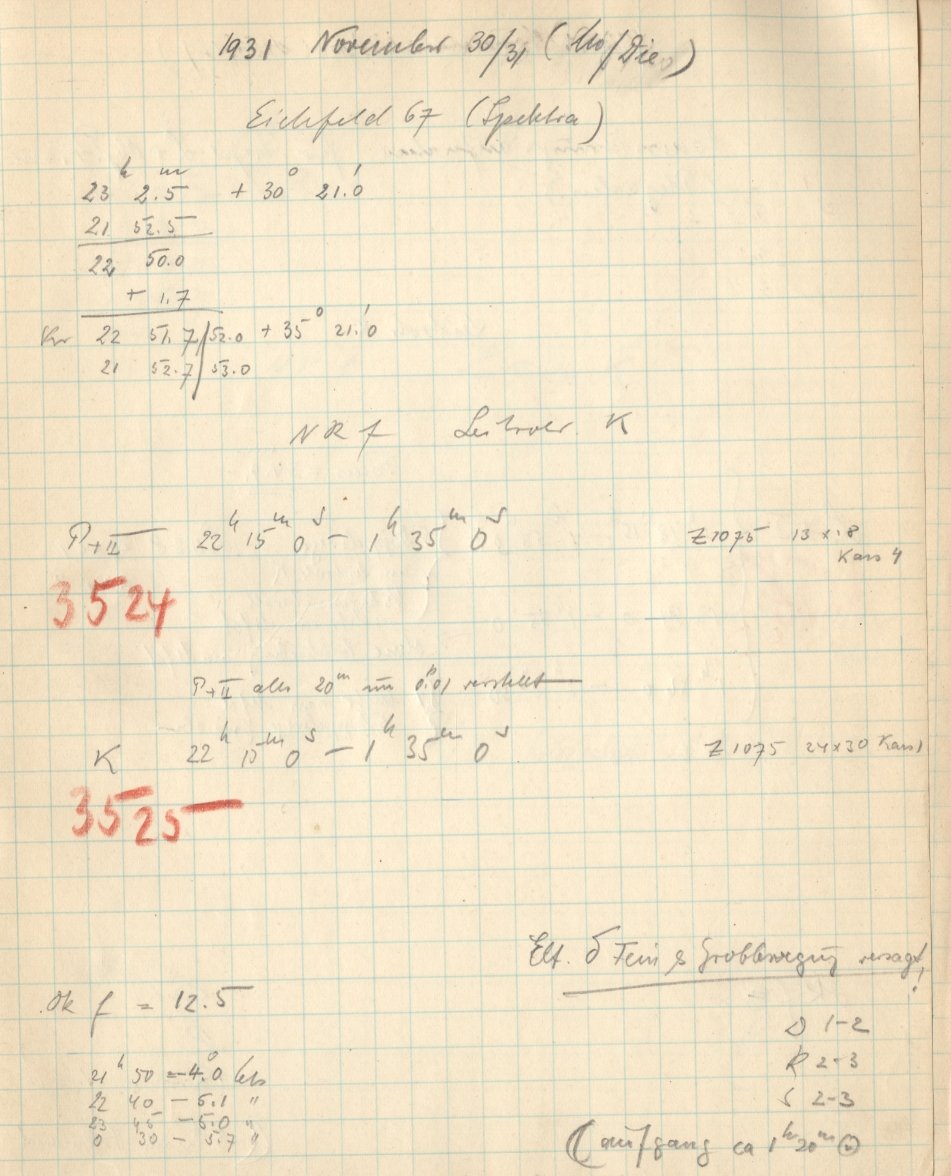 1931 November 30/31 (Mo/Die)
Eichfeld 67 (Spektra)
23h 2.5m + 30° 21.'0
21 52.5
22 50.0
+ 1.7
Kr 22 51.7/52.0 + 35° 21.'0
21 52.7/53.0
NR f Leitrohr K
P+II 22h 15m 0s – 1h 35m 0s Z1075 13x18
Kass 4
3524
P+II alle 20m um verstellt
K 22h 15m 0s – 1h 35m 0s Z1075 24x30 Kass 1
3525
Elt. δ Fein & Grobbewegung versagt!
Ok f = 12.5
D 1-2
R 2-3
S 2-3
21h 50 = -4.°0 Cels
22 40 – 5.1 "
23 45 – 5.0 "
0 30 – 5.7 "
☾ aufgang ca 1h 20m